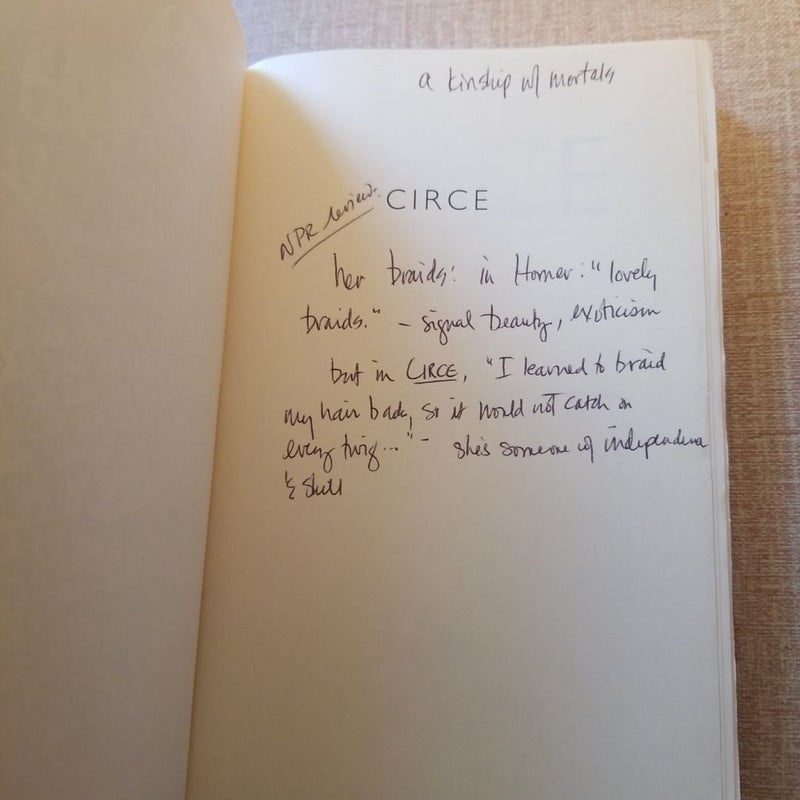 a kinship w/ mortals
NPR review:
CIRCE
her braids: in Homer: "lovely
braids." – signal beauty, exoticism
but in CIRCE, "I learned to braid
my hair back, so it would not catch on
every twig..." – she's someone w/ independence
& skill